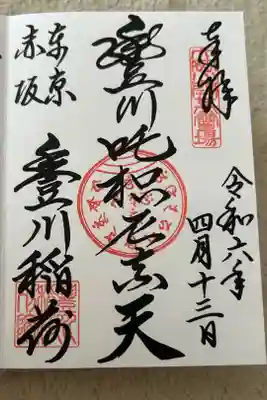 奉拝
令和六年
四月十三日
豊川吒枳尼真天
東京
赤坂
豊川稲荷